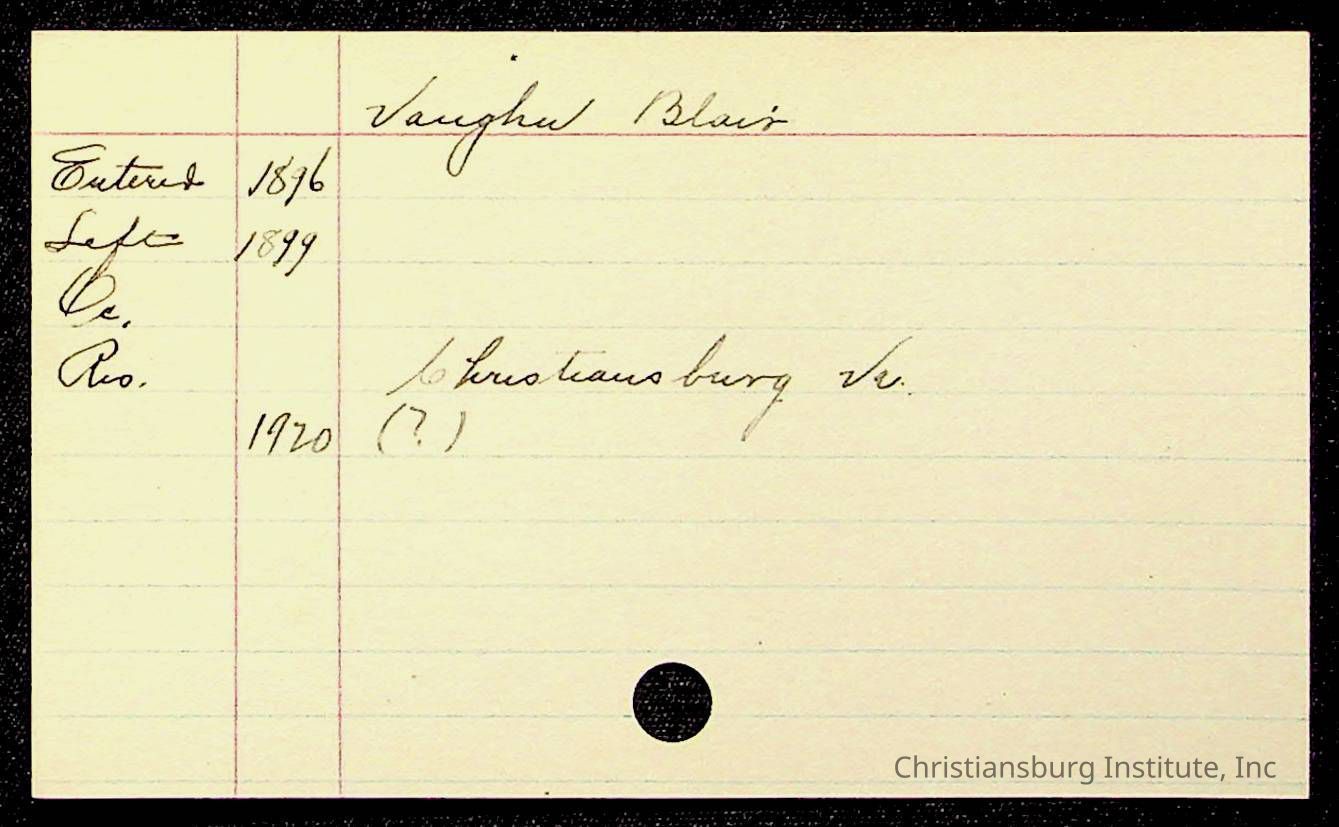 Vaughn Blair
Entered 1896
Left 1899
Oc.
Res. Christiansburg Va.
1920 (?)
Christiansburg Institute, Inc